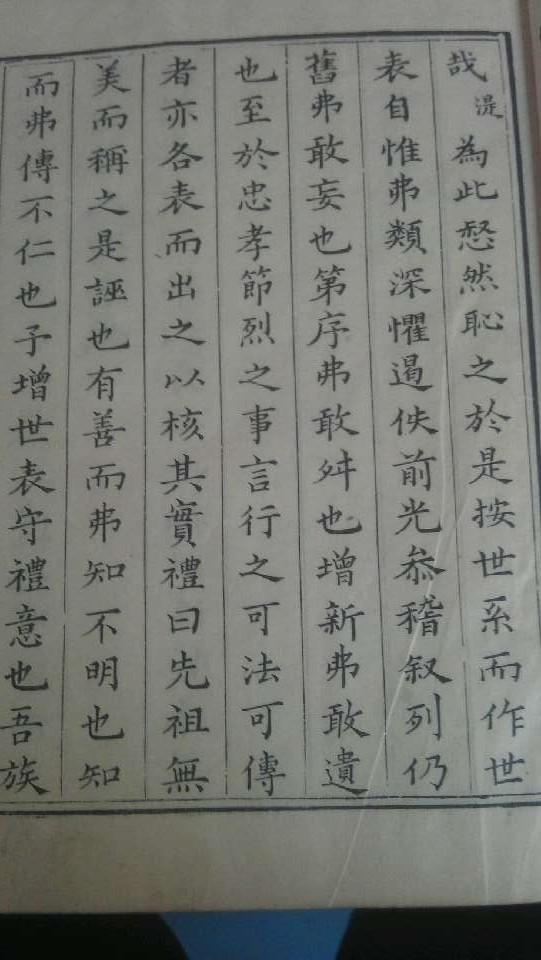 哉湜為此惄然恥之於是按世系而作世
表自惟弗類深懼遏佚前光叅稽叙列仍
舊弗敢妄也第序弗敢舛也增新弗敢遺
也至於忠孝節烈之事言行之可法可傳
者亦各表而出之以核其實禮曰先祖無
美而稱之是誣也有善而弗知不明也知
而弗傳不仁也予增世表守禮意也吾族